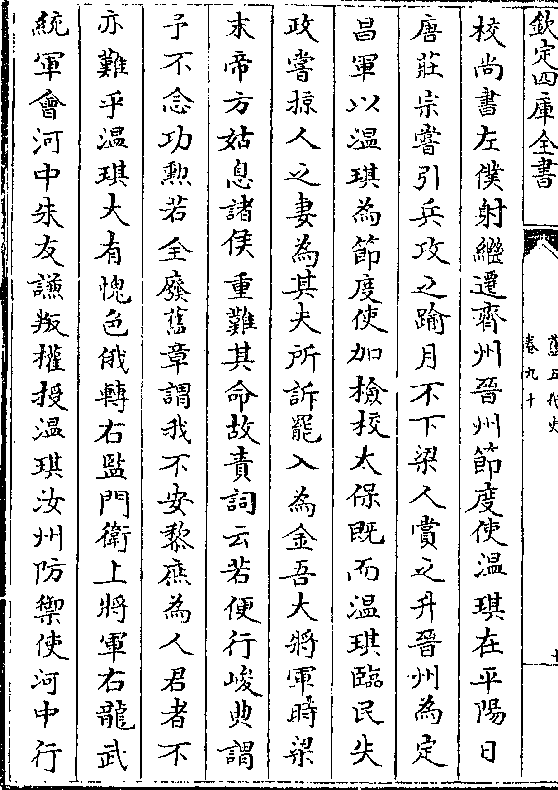 欽定四庫全書
舊五代史
卷九十
校尚書左僕射繼遷齊州晉州節度使温琪在平陽日
唐莊宗嘗引兵攻之踰月不下梁人賞之升晉州為定
昌軍以温琪為節度使加檢校太保既而温琪臨民失
政嘗掠人之妻為其夫所訴罷入為金吾大將軍時梁
末帝方姑息諸侯重難其命故責詞云若便行峻典謂
予不念功勲若全廢舊章謂我不安黎庶為人君者不
亦難乎温琪大有愧色俄轉右監門衛上將軍右龍武
統軍會河中朱友謙叛權授温琪汝州防禦使河中行